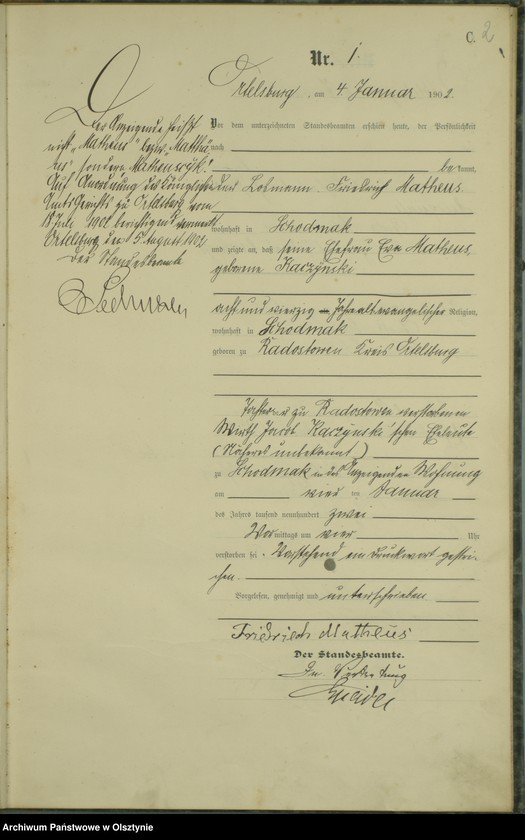 C. 2
Nr. 1.
Ortelsburg, am 4 Januar 1902.
Vor dem unterzeichneten Standesbeamten erschien heute, der Persönlichkeit
nach
be kannt,
der Losmann Friedrich Matheus
wohnhaft in Schodmak
und zeigte an, daß seine Ehefrau Eva Matheus,
geborene Kaczynski
acht und vierzig Jahre alt evangelischer Religion,
wohnhaft in Schodmak
geboren zu Radostowen Kreis Ortelsburg
Tochter der zu Radostowen verstorbenen
Wirth Jacob Kaczynski'schen Eheleute
(Näheres unbekannt)
zu Schodmak in des Anzeigenden Wohnung
am vier ten Januar
des Jahres tausend neunhundert zwei
Vor mittags um vier Uhr
verstorben sei. Vorstehend ein Druckwort gestri-
chen.
Vorgelesen, genehmigt und unterschrieben
Friedrich Matheus
Der Standesbeamte.
In Vertretung
Der Anzeigende heißt
nicht „Matheus" bezw. „Matthä
us" sondern Matheuszyk!
Auf Anordnung des Königlichen
Amtsgerichts zu Ortelsburg vom
Juli 1902 berichtigend vermerkt
Ortelsburg, den 5. August 1902
Der Standesbeamte
Archiwum Państwowe w Olsztynie